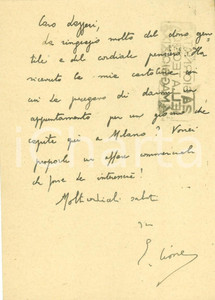 Caro Lazzeri,
La ringrazio molto del dono gen-
tile e del cordiale pensiero. Ha
ricevuto la mia cartolina con
cui la pregavo di darmi
appuntamento per un giorno che
capita qui a Milano? Vorrei
proporle un affare commerciale
che forse le interessa!
Molti cordiali saluti